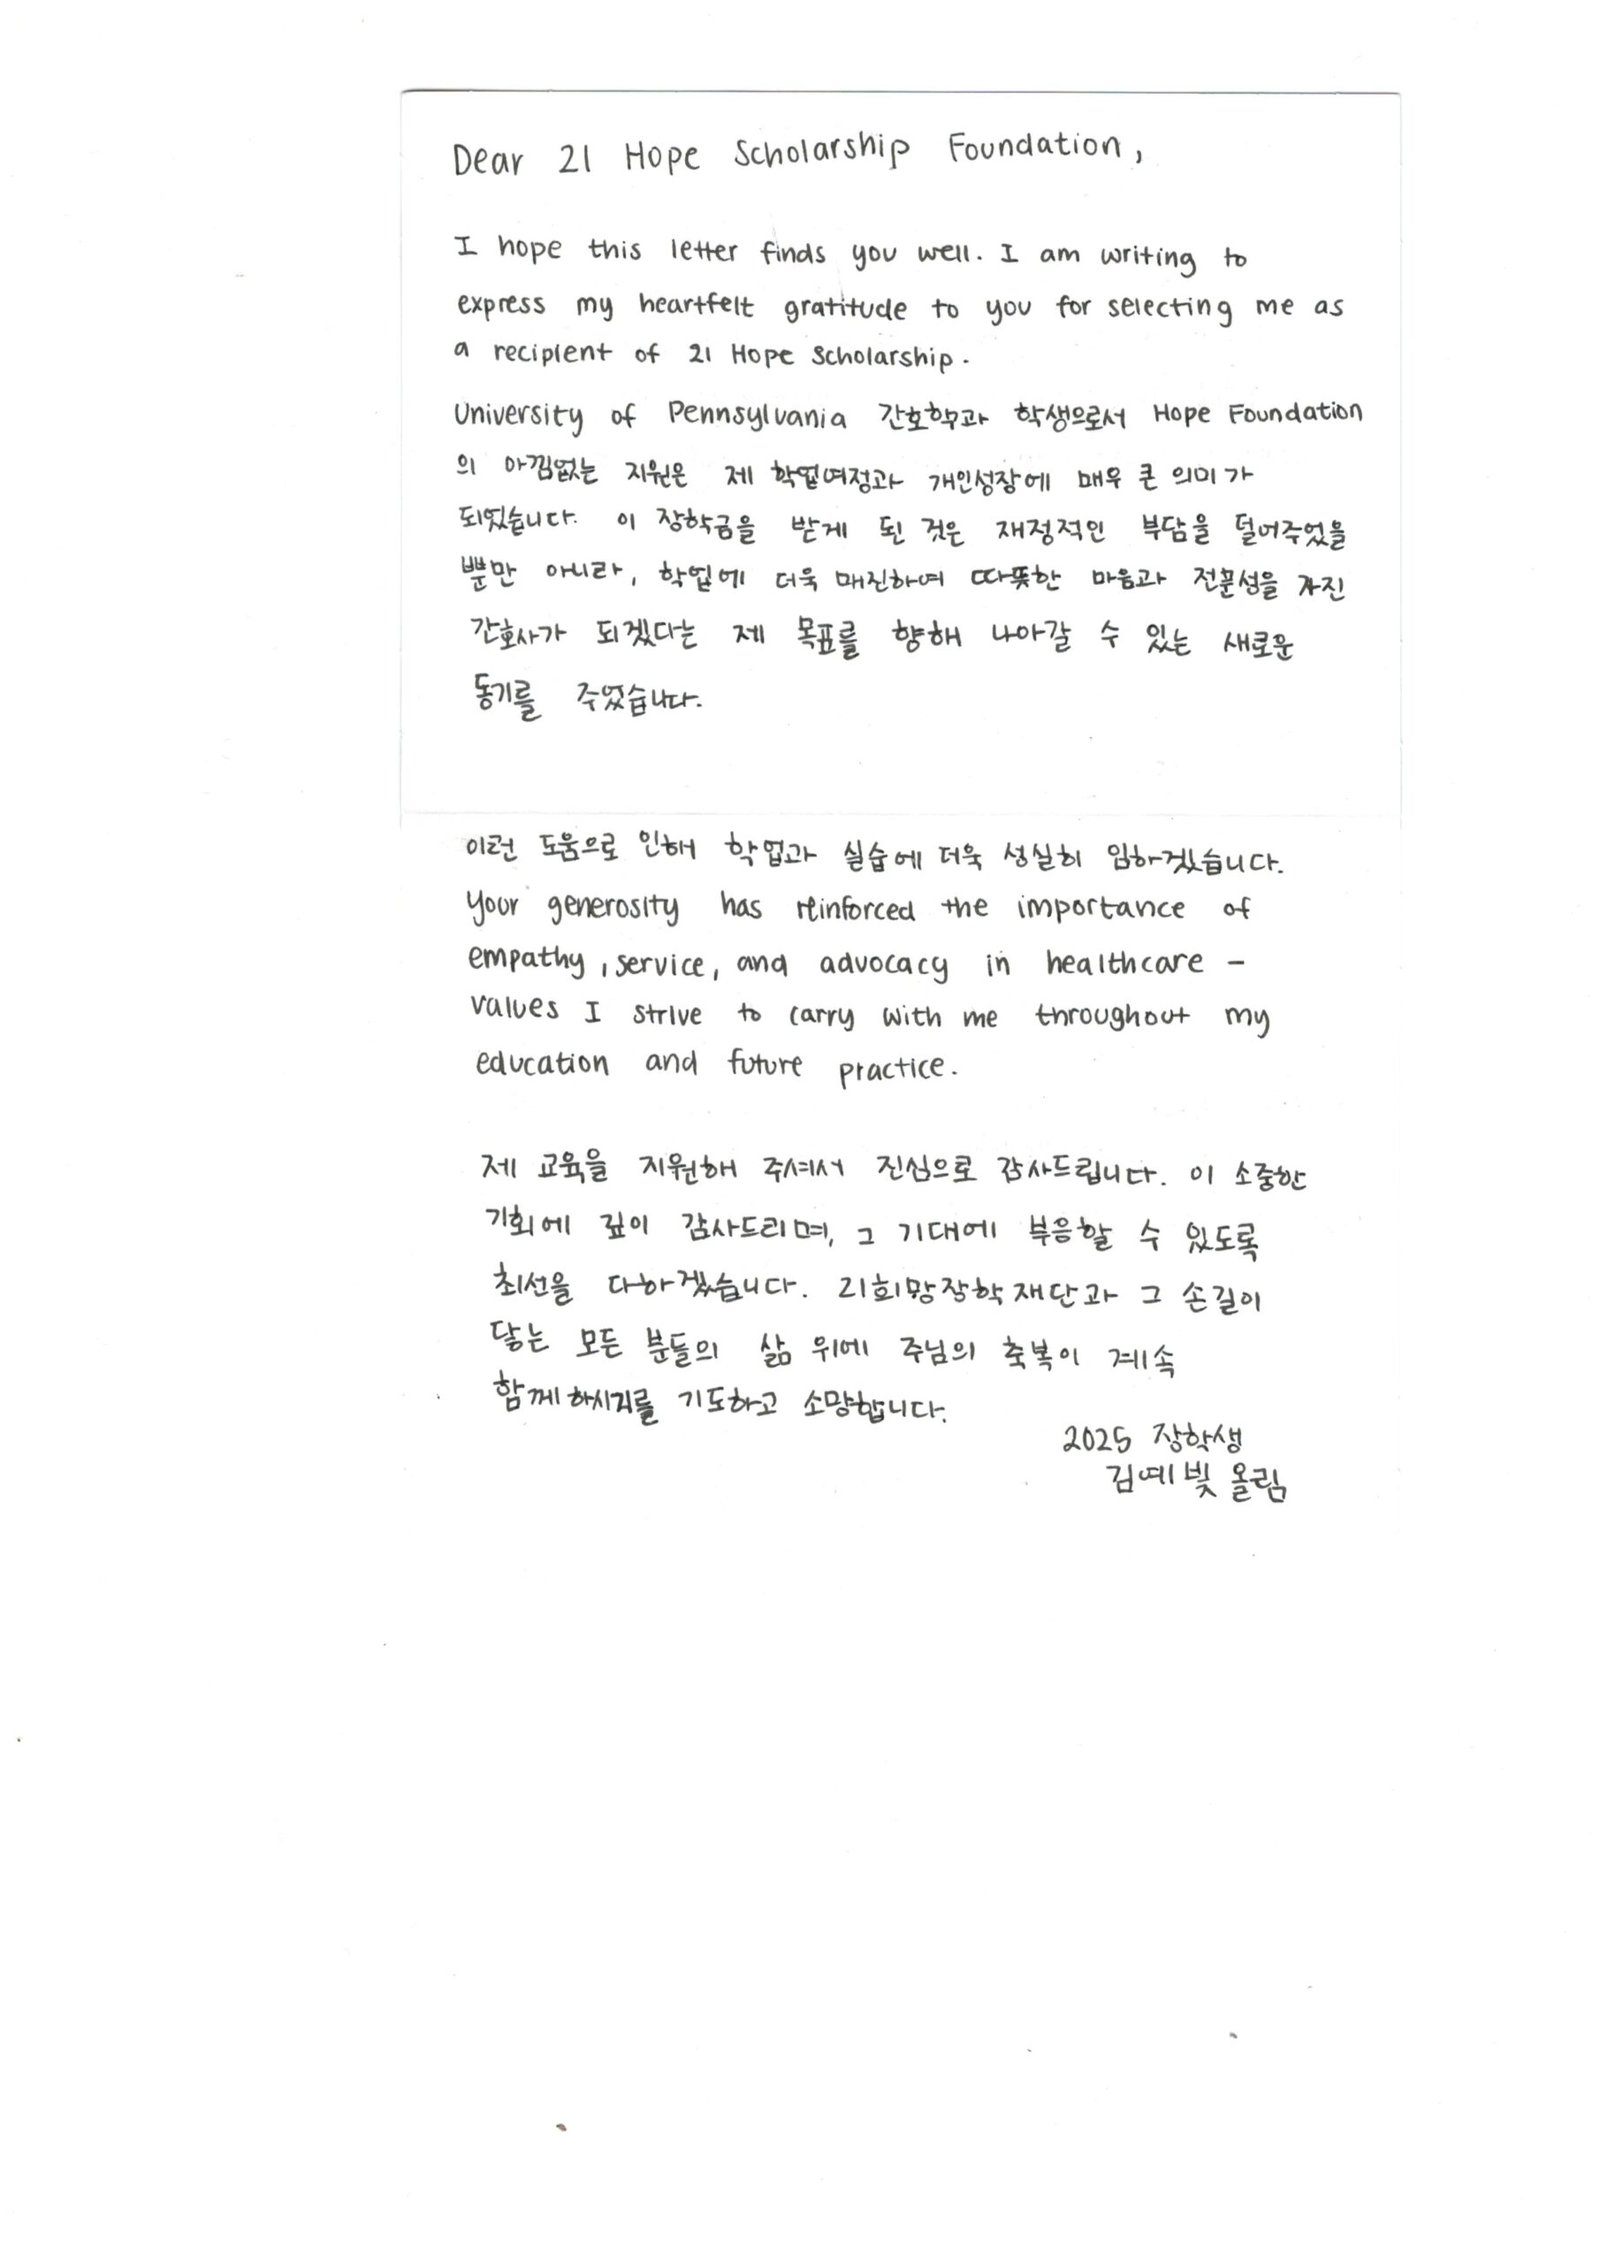 Dear 21 Hope Scholarship Foundation,
I hope this letter finds you well. I am writing to
express my heartfelt gratitude to you for selecting me as
a recipient of 21 Hope Scholarship.
University of Pennsylvania 간호학과 학생으로서 Hope Foundation
의 아낌없는 지원은 제 학업여정과 개인성장에 매우 큰 의미가
되었습니다. 이 장학금을 받게 된 것은 재정적인 부담을 덜어주었을
뿐만 아니라, 학업에 더욱 매진하여 따뜻한 마음과 전문성을 가진
간호사가 되겠다는 제 목표를 향해 나아갈 수 있는 새로운
동기를 주었습니다.
이런 도움으로 인해 학업과 실습에 더욱 성실히 임하겠습니다.
Your generosity has reinforced the importance of
empathy, service, and advocacy in healthcare -
values I strive to carry with me throughout my
education and future practice.
제 교육을 지원해 주셔서 진심으로 감사드립니다. 이 소중한
기회에 깊이 감사드리며, 그 기대에 부응할 수 있도록
최선을 다하겠습니다. 21희망장학재단과 그 손길이
닿는 모든 분들의 삶 위에 주님의 축복이 계속
함께하시기를 기도하고 소망합니다.
2025 장학생
김예빛 올림